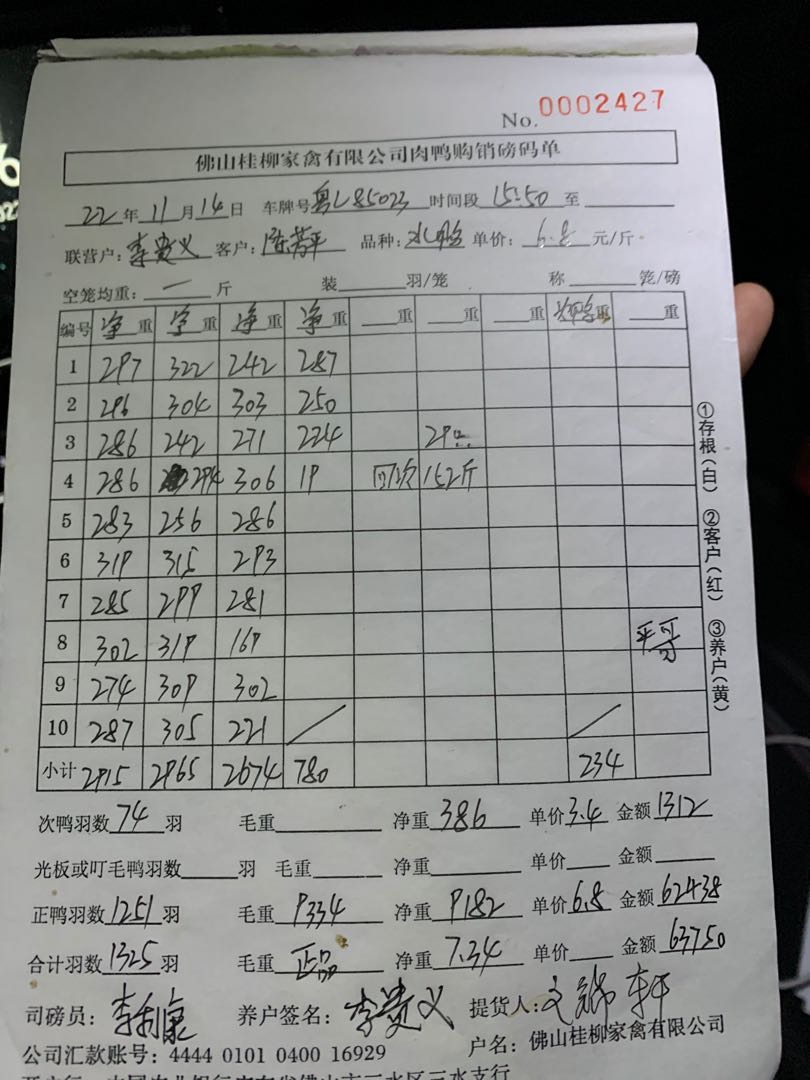 No. 0002427
佛山桂柳家禽有限公司肉鸭购销磅码单
22年11月14日 车牌号粤L85023 时间段15:50至
联营户:李贵义 客户:陈芳平 品种:水鸭 单价:6.8元/斤
空笼均重:一斤 装 羽/笼 称 笼/磅
编号 净重 净重 净重 净重 重 重 重 重 重
1 297 322 242 287
2 296 304 303 250
3 286 242 271 224 29
4 286 294 306 19 152斤
5 283 256 286
6 319 315 293
7 285 299 281
8 302 319 169 平哥
9 274 309 302
10 287 305 221
小计 2915 2965 2674 780 234
①存根(白) ②客户(红) ③养户(黄)
次鸭羽数74羽 毛重 净重386 单价3.4 金额1312
光板或叮毛鸭羽数 羽 毛重 净重 单价 金额
正鸭羽数1251羽 毛重9334 净重9182 单价6.8 金额62438
合计羽数1325羽 毛重正品 净重7.34 单价 金额63750
司磅员:李利康 养户签名:李贵义 提货人:
公司汇款账号:4444 0101 0400 16929 户名:佛山桂柳家禽有限公司